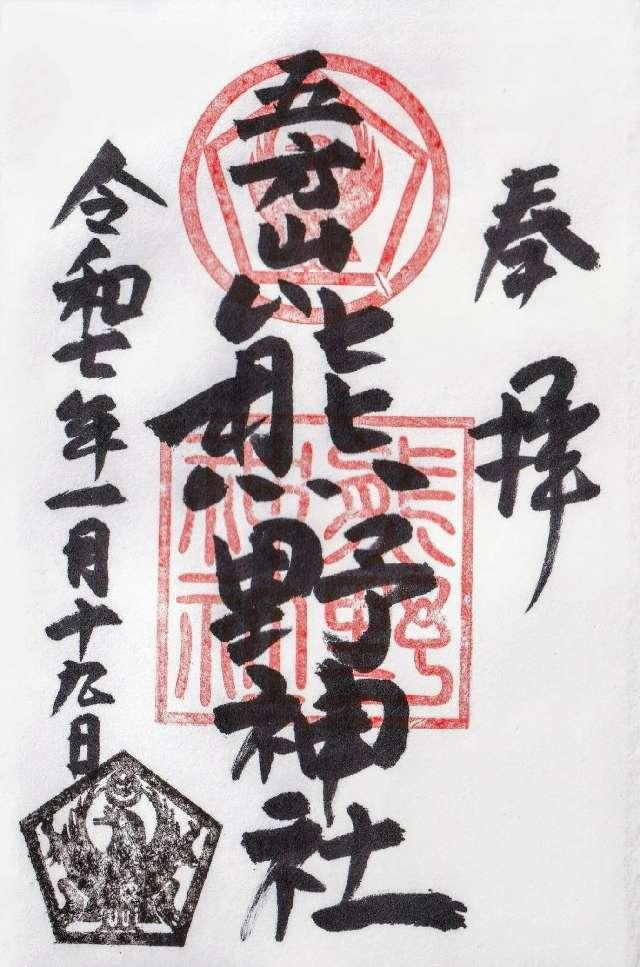 奉拝
五方山熊野神社
熊野
神社
令和七年一月十九日